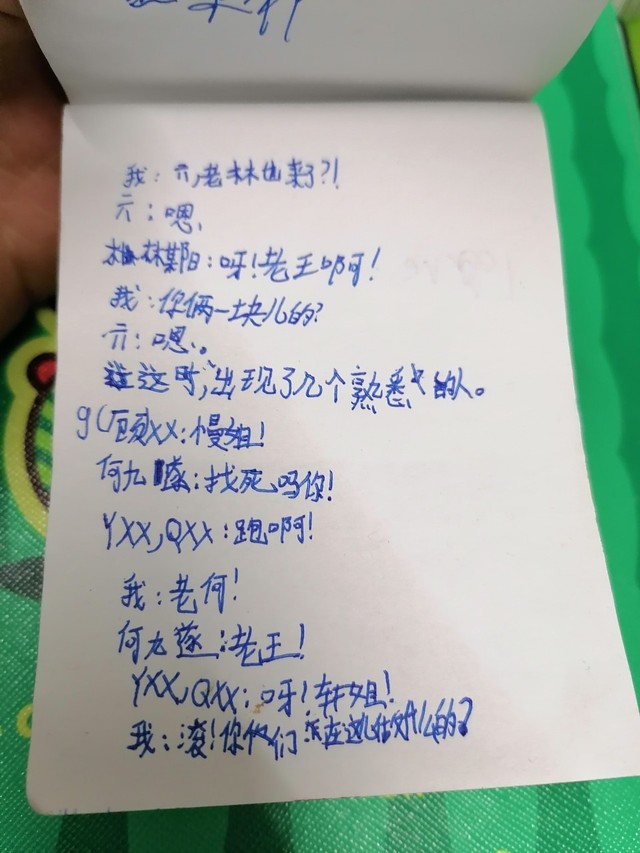 我：六，老林也来了?!
六：嗯、
林某阳：呀！老王啊！
我：你俩一块儿的？
六：嗯。
这时，出现了几个熟悉的人。
XX：慢姐！
何九：找死吗你！
YXX，QXX：跑啊！
我：老何！
何九：老王！
YXX，QXX：呀！轩姐！
我：滚！你们在这儿什么的？